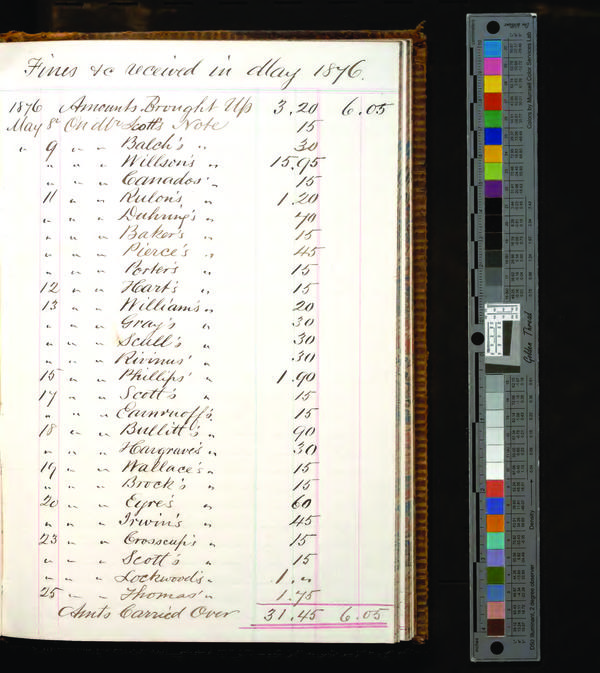 Fines &c received in May 1876.
1876 Amounts Brought Up 3.20 6.05
May 8th On Mr Scott's Note 15
" 9 " " Balch's " 30
" " " Willson's " 15.95
" " " Canados' " 15
11 " " Rulon's " 1.20
" " " Duhring's " 70
" " " Baker's " 15
" " " Pierce's " 45
" " " Porter's " 15
12 " " Hart's " 15
13 " " William's " 20
" " " Gray's " 30
" " " Scull's " 30
" " " Rivinus' " 30
15 " " Phillips' " 1.90
17 " " Scott's " 15
" " " 15
18 " " Bullitt's " 90
" " " Hargrave's " 30
19 " " Wallace's " 15
" " " Brock's " 15
20 " " Eyre's " 60
" " " Irwin's " 45
23 " " Crosscup's " 15
" " " Scott's " 15
" " " Lockwood's " 1."
25 " " Thomas' " 1.75
Amts Carried Over 31.45 6.05
Golden Thread